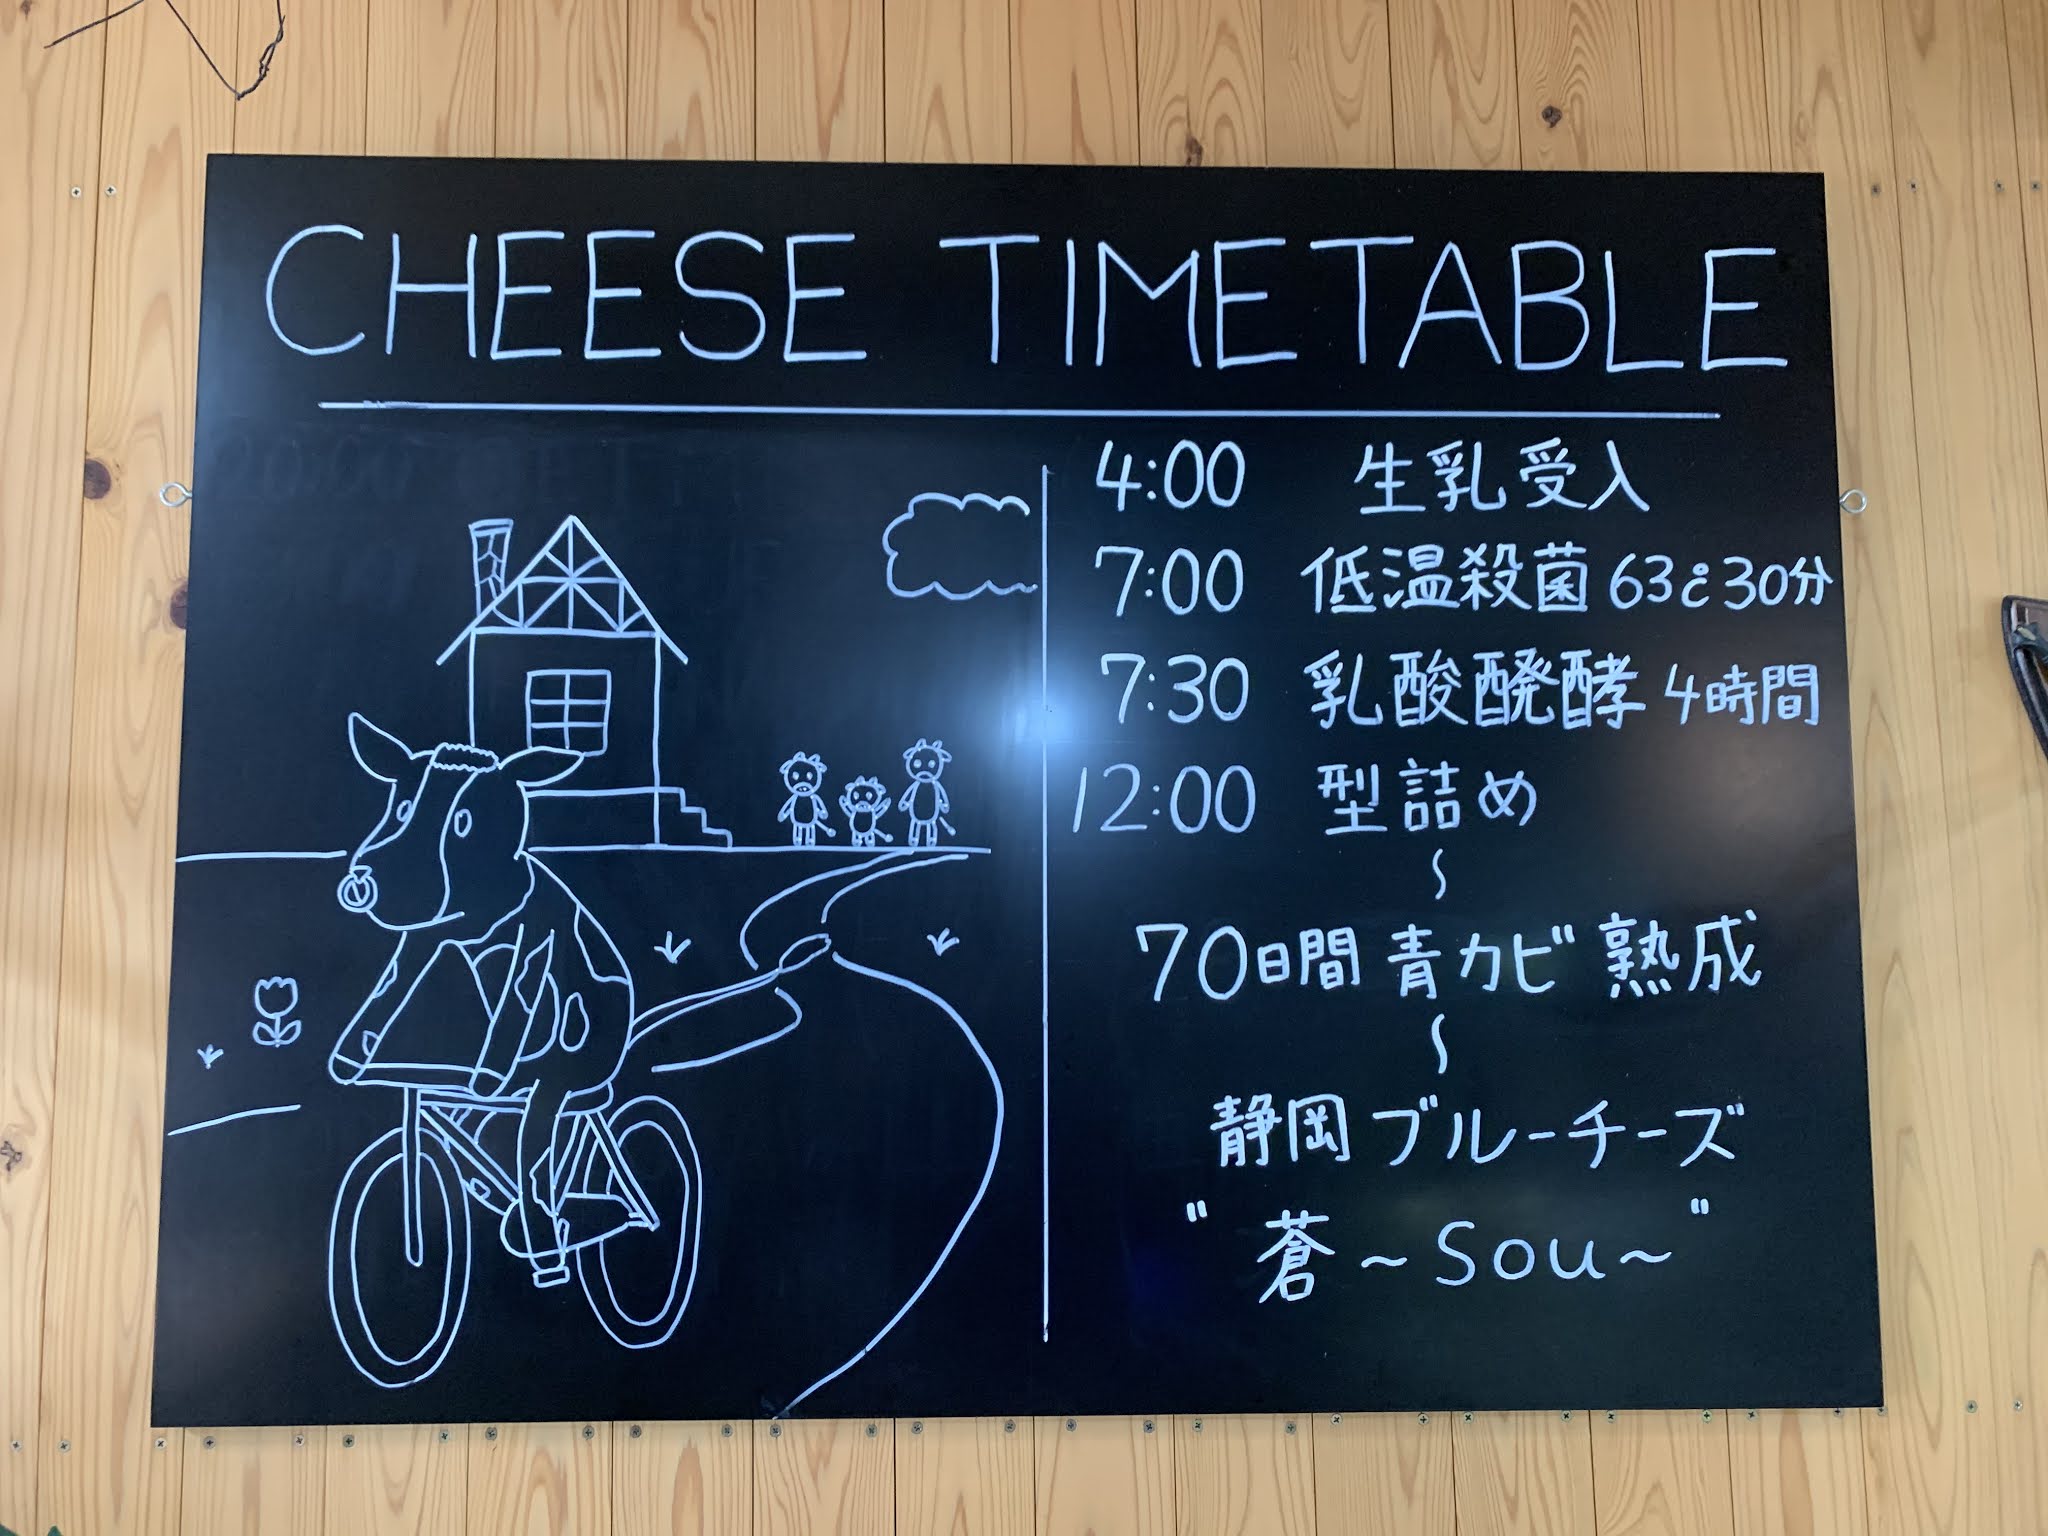 CHEESE TIMETABLE
4:00 生乳受入
7:00 低温殺菌 63℃30分
7:30 乳酸醗酵 4時間
12:00 型詰め
~
70日間 青カビ 熟成
~
静岡ブルーチーズ
"蒼~Sou~"